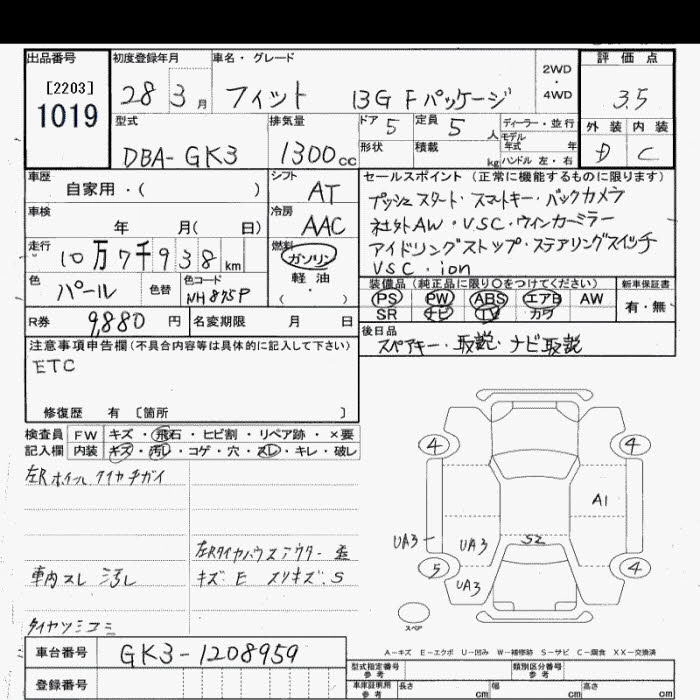 出品番号 初度登録年月 車名・グレード 評価点
[2203] 1019
28 3月 フィット 13G Fパッケージ 2WD・4WD 3.5
型式 排気量 ドア 5 定員 5人 ディーラー・並行 外装 内装
DBA-GK3 1300cc 形状 積載 kg モデル年式 年式 ハンドル 左・右 D C
車歴 シフト セールスポイント(正常に機能するものに限ります)
自家用・( ) AT プッシュスタート・スマートキー・バックカメラ
車検 冷房 社外AW・VSC・ウィンカーミラー
年 月( 日) AAC アイドリングストップ・ステアリングスイッチ
走行 燃料 VSC・ion
10万7千938km ガソリン
軽油
・( )
色 色替 色コード 装備品(純正品に限り○をつけてください) 新車保証書
パール NH875P PS PW ABS エアB AW 有・無
SR ナビ TV カワ
R券 9,880円 名変期限 月 日 後日品
スペアキー・取説・ナビ取説
注意事項申告欄(不具合内容等は具体的に記入して下さい)
ETC
修復歴 有 〔箇所 〕
検査員 FW キズ・飛石・ヒビ割・リペア跡・×要
記入欄 内装 キズ・汚れ・コゲ・穴・スレ・キレ・破レ
左Rホイール タイヤチガイ
左Rタイヤハウスアウター
車内スレ 汚レ キズ.E スリキズ.S
タイヤツミコミ
4 4
A1
UA3 UA3 S2
5 4
UA3
スペア
A-キズ E-エクボ U-凹み W-補修跡 S-サビ C-腐食 XX-交換済
車台番号 GK3-1208959
型式指定番号 参考 類別区分番号 参考
登録番号 車庫証明用 参考 長さ cm 幅 cm 高さ cm